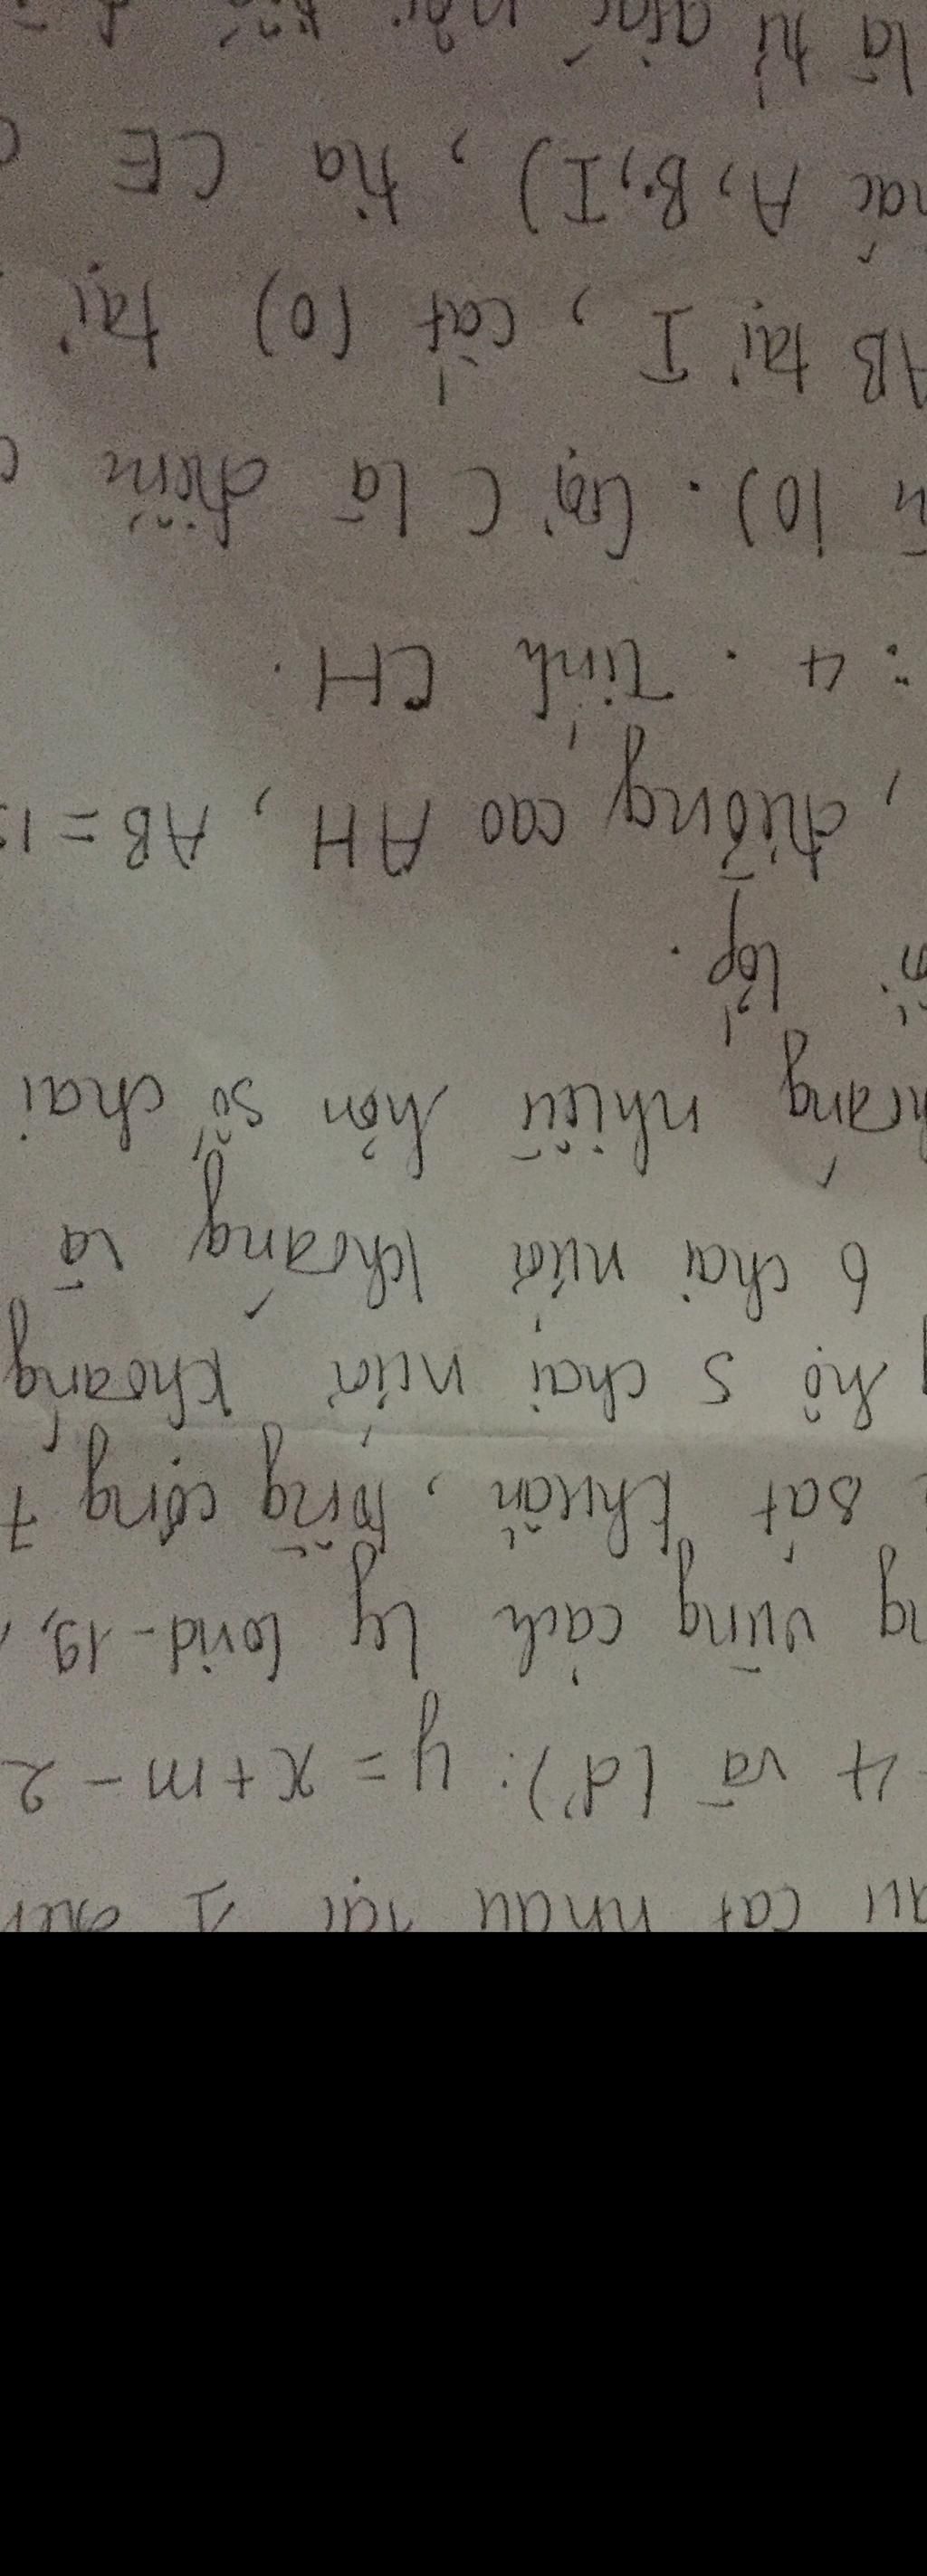 cắt nhau tại 1
4 và (d'): y = x+m-2
vùng cách ly Covid-19,
sát khuẩn, tổng cộng 7
hộ 5 chai nước khoáng
6 chai nước khoáng và
nhiều hơn số chai
lớp.
, đường cao AH, AB = 1
: 4. Tính CH.
(O). Gọi C là điểm
AB tại I, cắt (O) tại
A, B, I), tia CE
là tứ giác nội